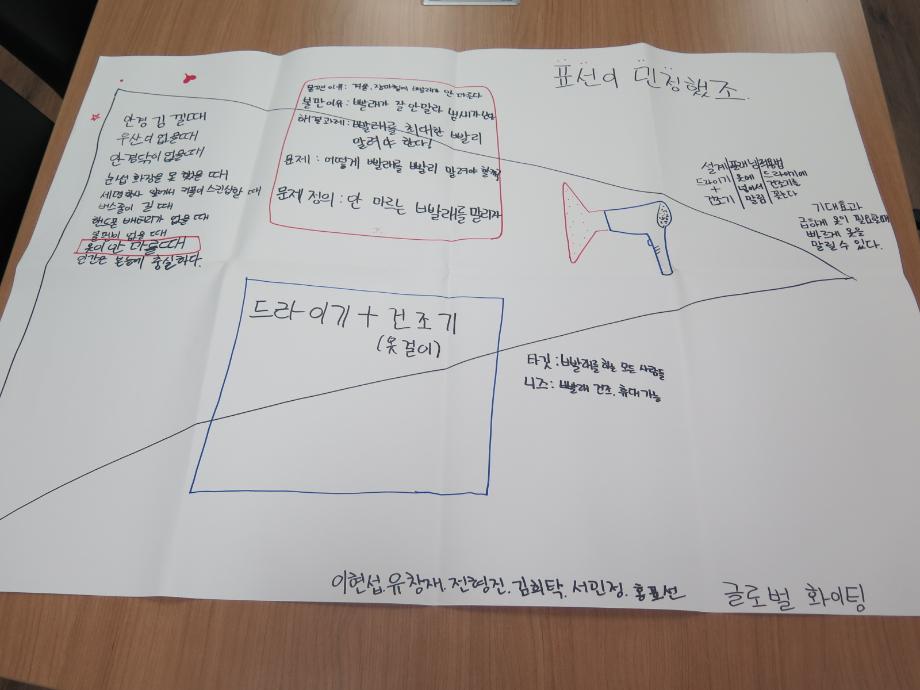 표선이 민정했조.
안경 김 낄때
우산이 없을때
안경닦이 없을때
눈썹 화장을 못 했을 때
버스줄이 길 때
핸드폰 배터리가 없을 때
옷이 안 마를때
인간은 본능에 충실하다.
불편이유: 겨울, 장마철에 빨래가 안 마른다
불만이유: 빨래가 잘 안말라 냄새가 난다
해결과제: 빨래를 최대한 빨리
말려야 한다!
문제: 어떻게 빨래를 빨리 말려야 할까
문제 정의: 안 마르는 빨래를 말리자
설계
드라이기
+
건조기
옷에
넣어서
말림
드라이기에
건조기를
꽂는다
기대효과
급하게 옷이 필요할때
빠르게 옷을
말릴 수 있다.
드라이기 + 건조기
(옷걸이)
타깃: 빨래를 하는 모든 사람들
니즈: 빨래 건조, 휴대가능
이현섭, 유창재, 전형진, 김희탁, 서민정, 홍표선
글로벌 화이팅